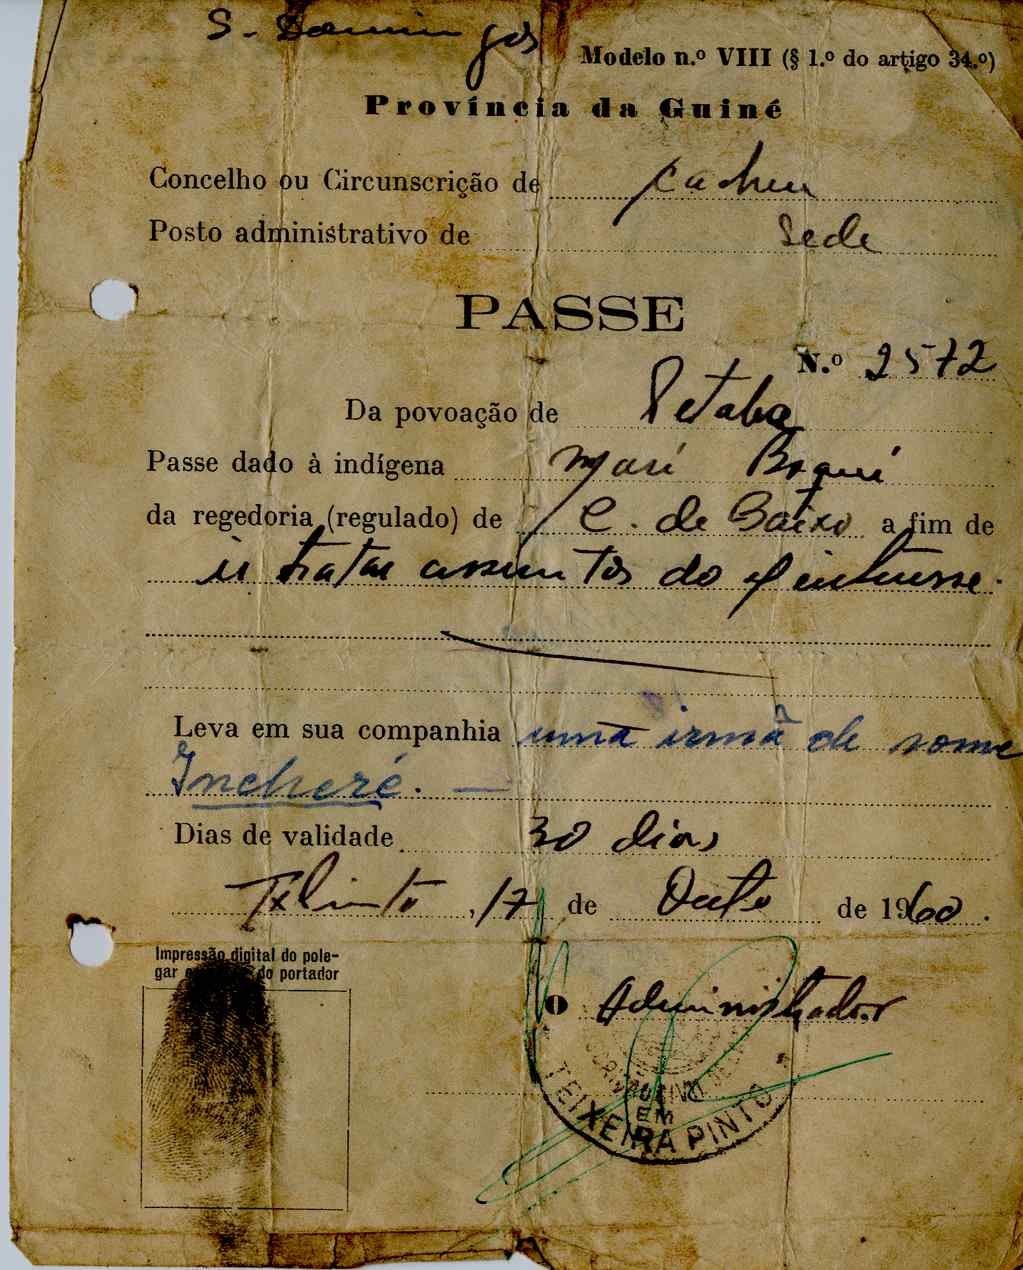 S. Domingos
Modelo n.º VIII (§ 1.º do artigo 34.º)
Província da Guiné
Concelho ou Circunscrição de Cacheu
Posto administrativo de Sede
PASSE
N.º 2572
Da povoação de Petaba
Passe dado à indígena Mari
da regedoria (regulado) de C. de Baixo a fim de
ir tratar assuntos do
Leva em sua companhia uma irmã de nome
Incheré. —
Dias de validade 30 dias
T. Pinto, 17 de Outº de 1960.
Impressão digital do pole-
gar do portador
O Administrador
EM
TEIXEIRA PINTO